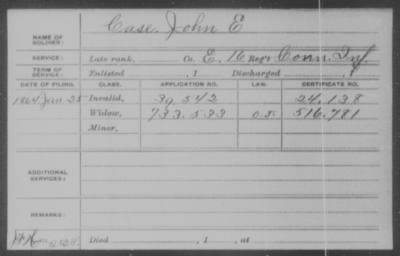 NAME OF SOLDIER: Case, John E
SERVICE: Late rank, Co. E, 16 Reg't Conn. Inf.
TERM OF SERVICE: Enlisted , 1 Discharged , 1
DATE OF FILING. CLASS. APPLICATION NO. LAW. CERTIFICATE NO.
1864 Jan 25 Invalid, 39.542 24.138
Widow, 733.533 516.781
Minor,
ADDITIONAL SERVICES:
REMARKS:
Died , 1 , at